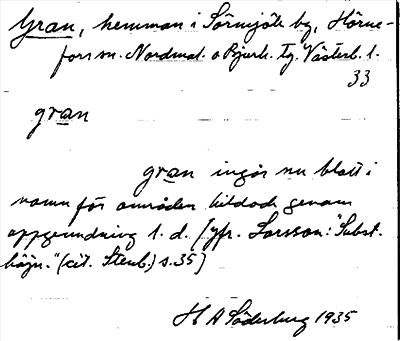 Gran, hemman i Sörmjöle by, Hörne-
fors sn. Nordmal. o Bjurh. tg. Västerb. l.
33
gran
gran ingår nu blott i
namn för områden bildade genom
uppgrundning l. d. [Jfr. Larsson: "Subst.
böjn." (cit. Stenb.) s. 35]
H A Söderberg 1935